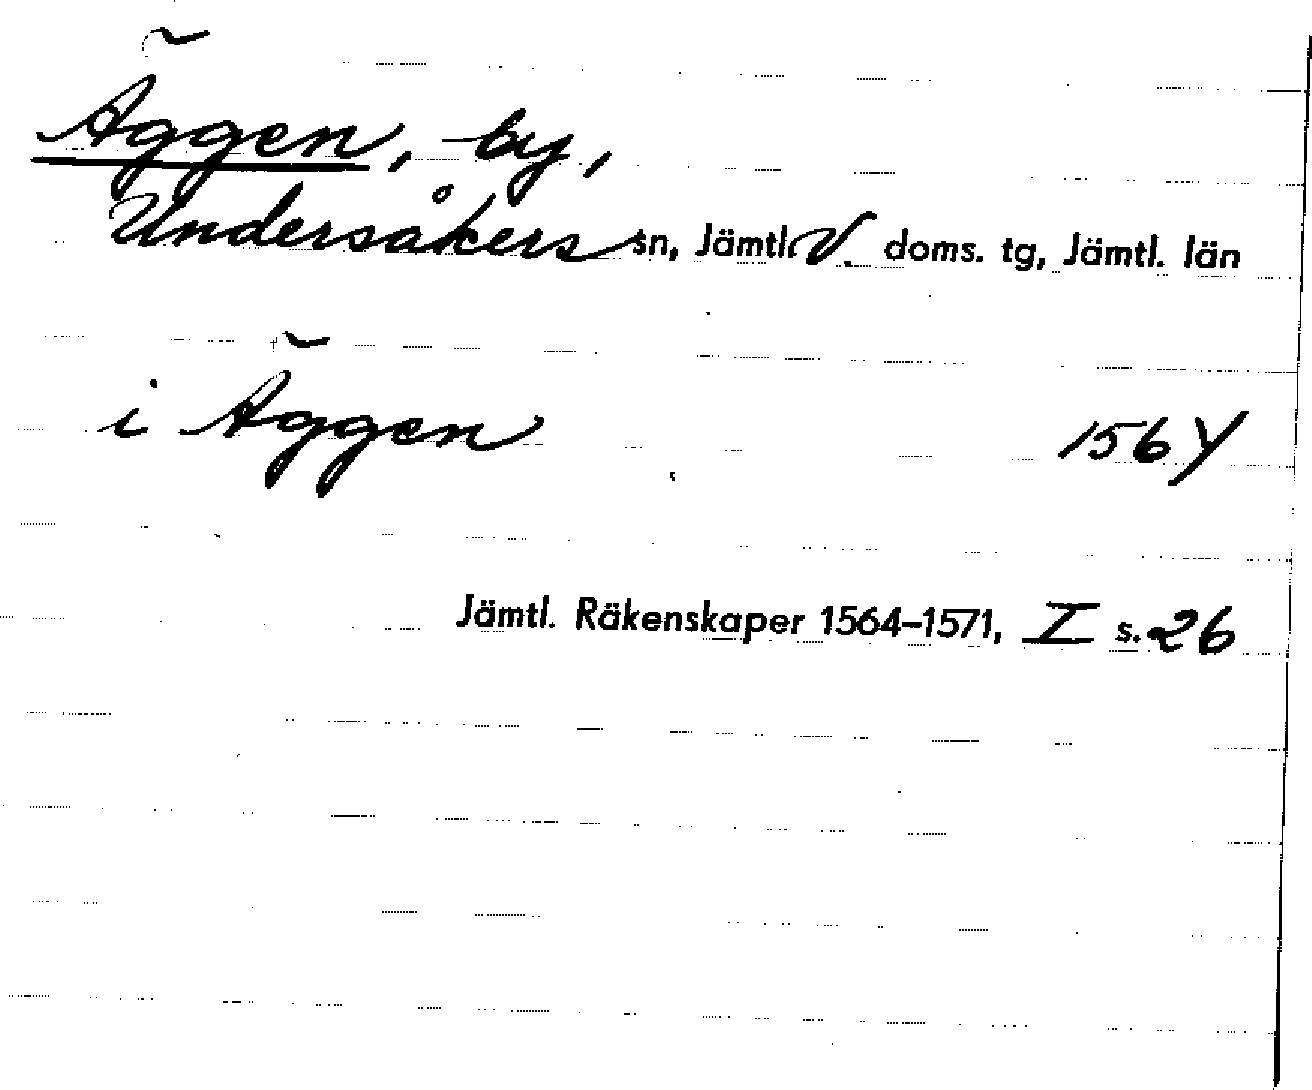 Äggen, by,
Undersåkers sn, Jämtl. V. doms. tg, Jämtl. län
i Äggen 1564
Jämtl. Räkenskaper 1564–1571, I s. 26